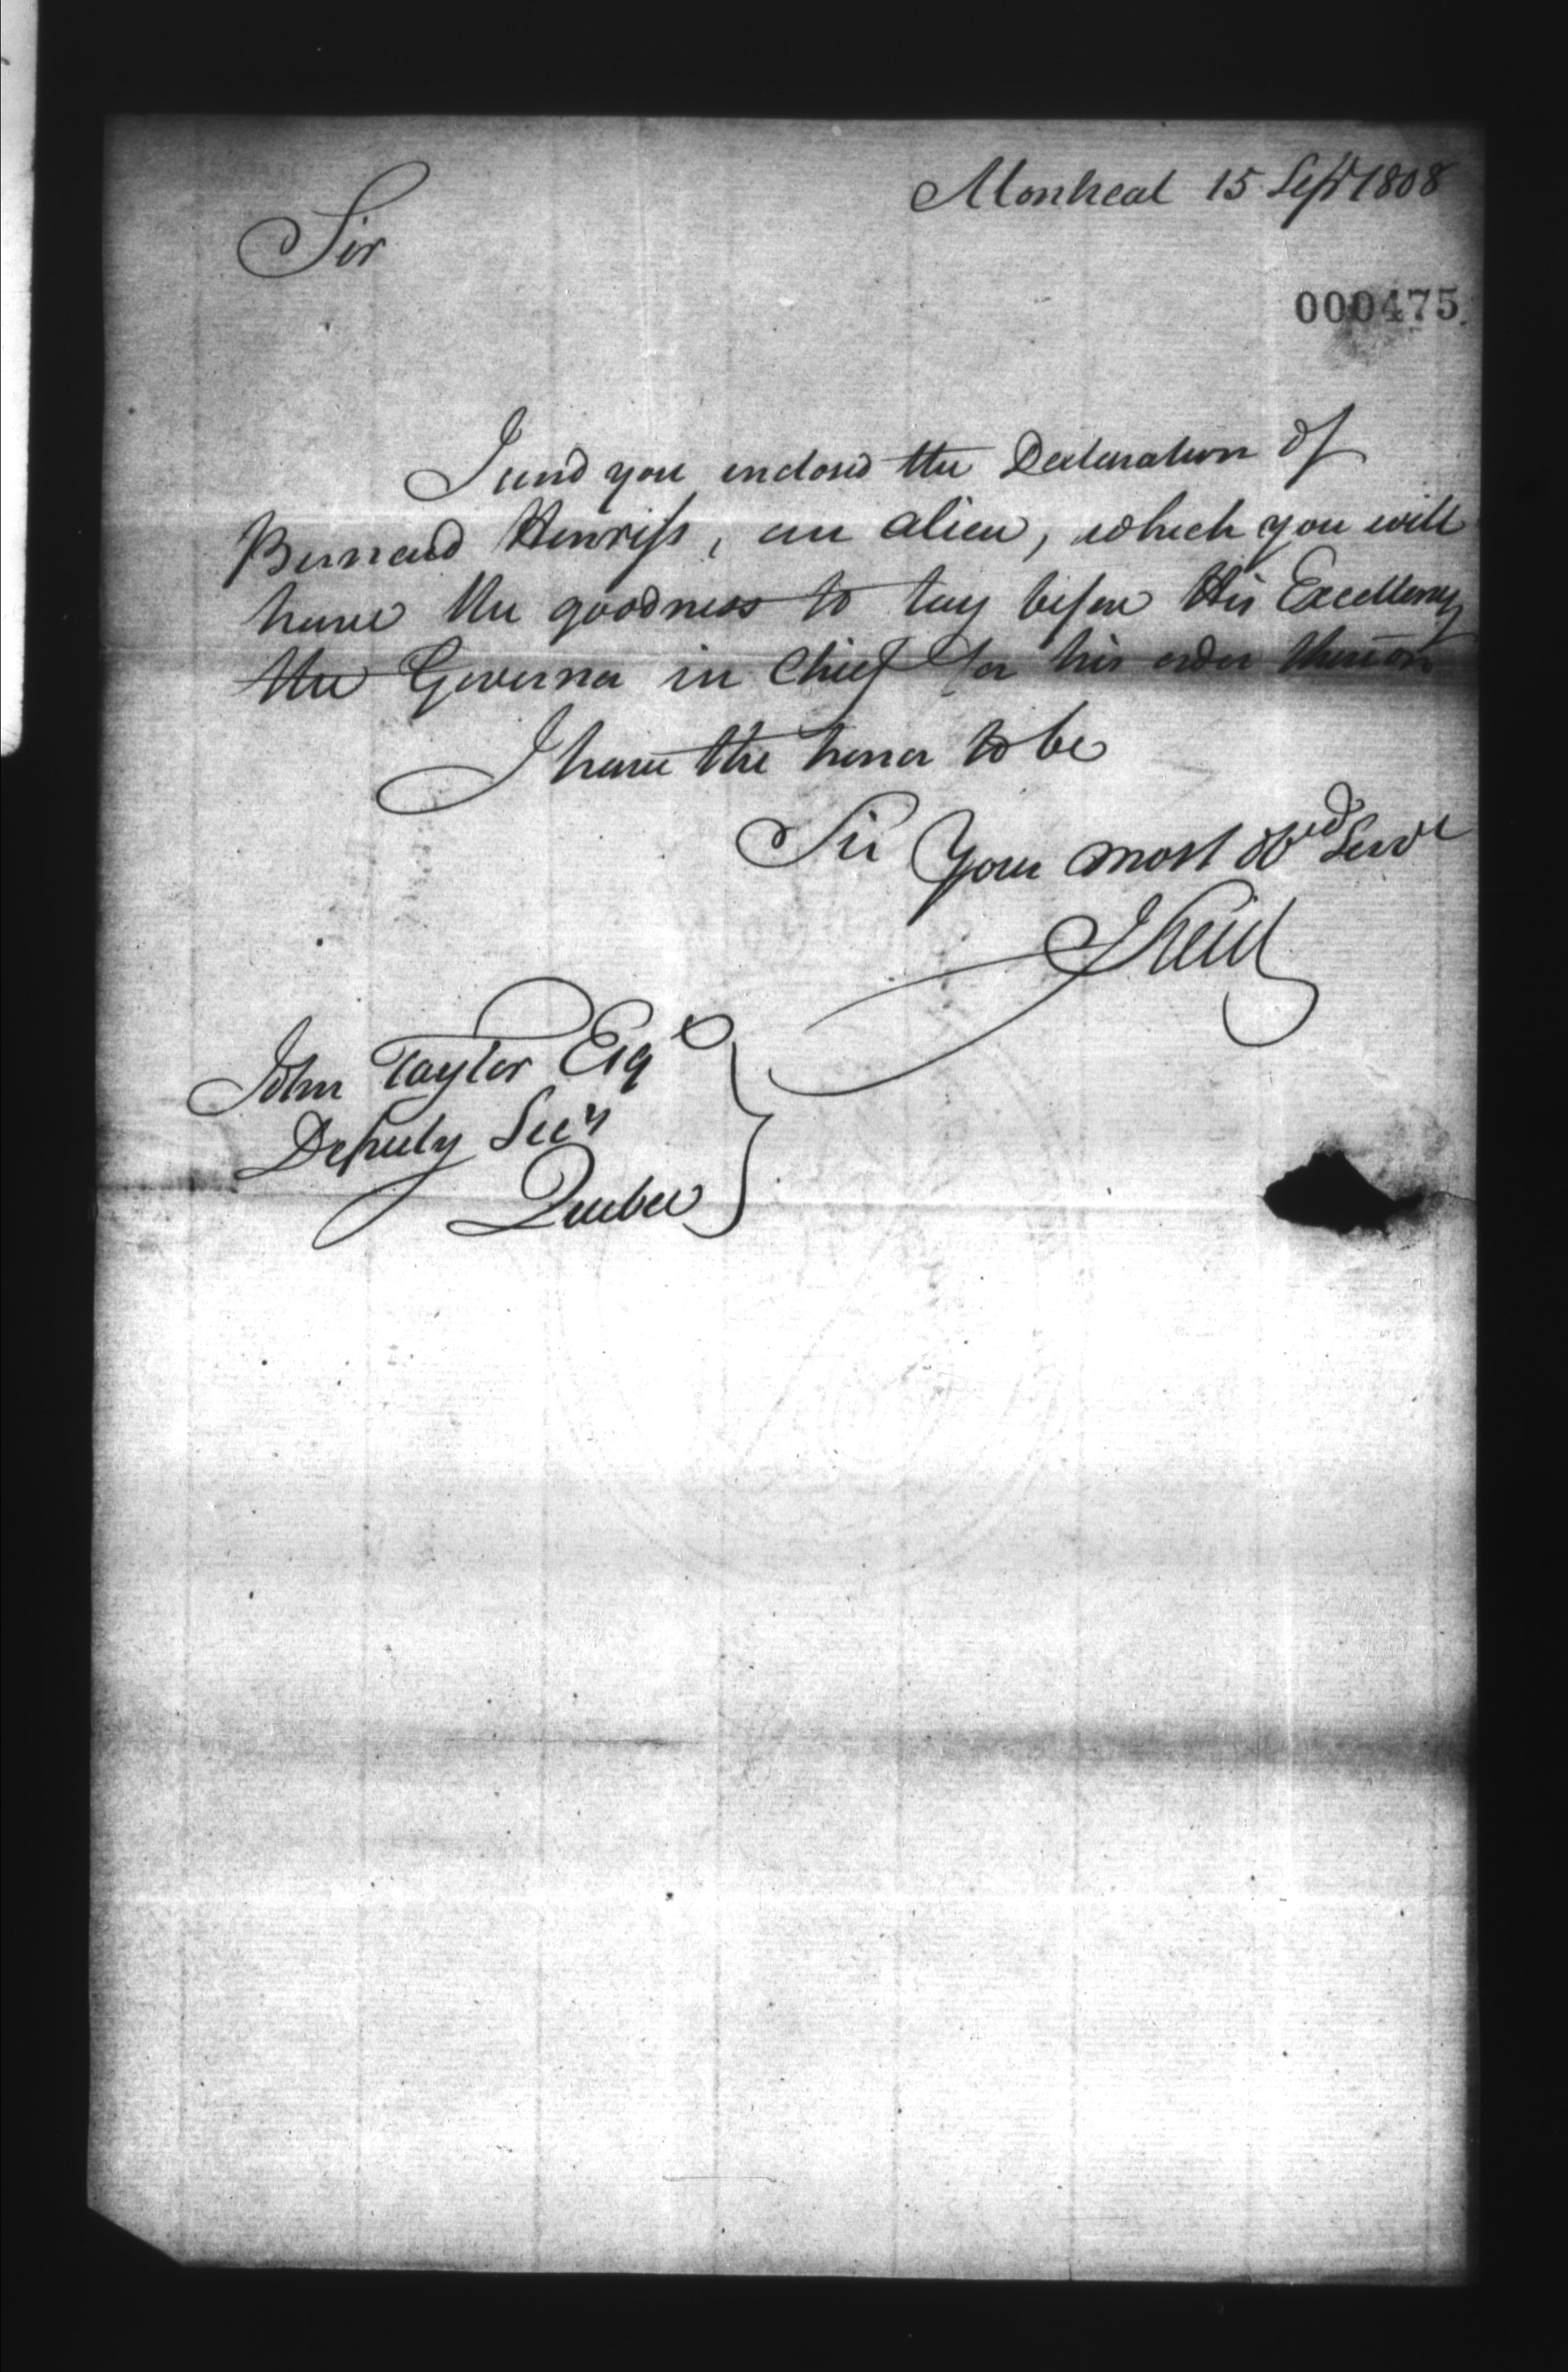 Montreal 15 Sept 1808
Sir
000475
I send you inclosed the Declaration of
Bernard Henriss, an alien, which you will
have the goodness to lay before His Excellency
the Governor in Chief for his order thereon
I have the honor to be
Sir Your most obed Servt
J Reid
John Taylor Esqr
Deputy Secy
Quebec